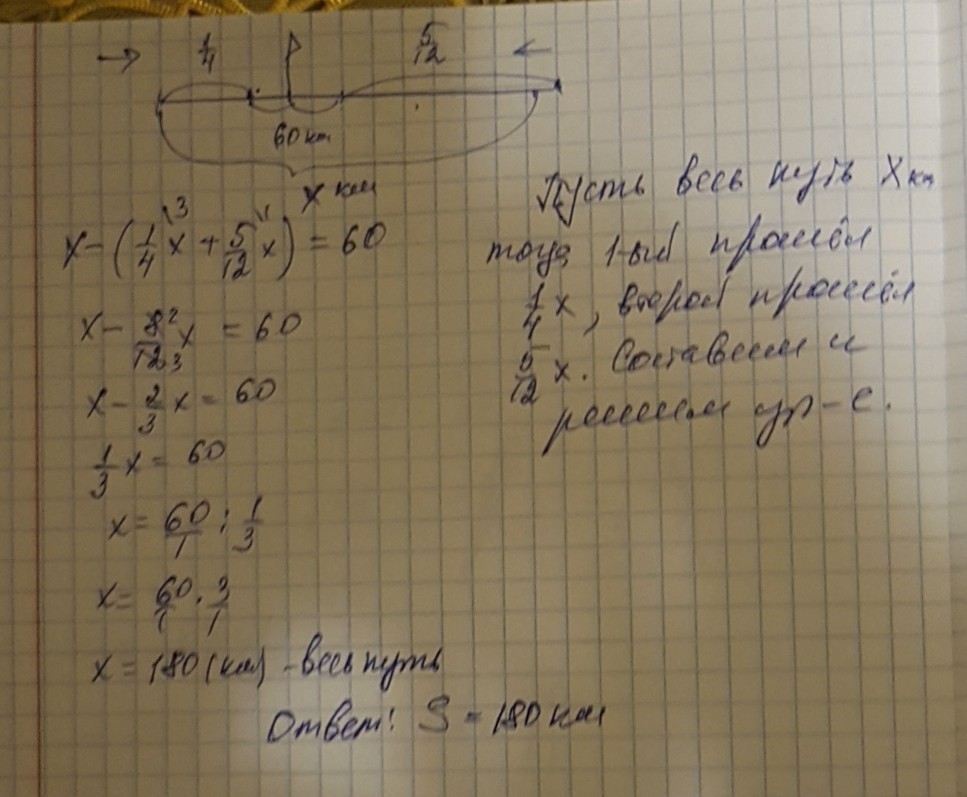 → 1/4 5/12 ←
60 км
x км
x – (1/4 x + 5/12 x) = 60
x – 8/12 x = 60
x – 2/3 x = 60
1/3 x = 60
x = 60/1 : 1/3
x = 60/1 · 3/1
x = 180 (км) – весь путь
Ответ: S = 180 км
Пусть весь путь X км
тогда 1-ый прошёл
1/4 x, второй прошёл
5/12 x. Составим и
решим ур-е.